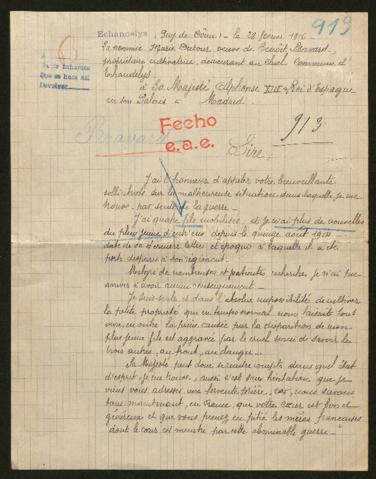 Echandelys (Puy de Dôme) - le 28 février 1916
913
La nommée Marie Dutour veuve de Benoît Bravard,
propriétaire cultivatrice, demeurant au Commune d'
Echandelys
à Sa Majesté Alphonse XIII Roi d'Espagne
en son Palais à Madrid
Devolver
913
Bravard
Fecho
e.a.e.
Sire,
J'ai l'honneur d'appeler votre bienveillante
sollicitude sur la malheureuse situation dans laquelle je me
trouve par suite de la guerre.
J'ai quatre fils mobilisés et je n'ai plus de nouvelles
du plus jeune d'entr'eux depuis le quinze août 1914
date de sa dernière lettre et époque à laquelle il a été
porté disparu à son régiment.
Malgré de nombreuses et recherches je n'ai pu
arriver à avoir aucun renseignement.
Je suis seule et dans l'absolue impossibilité de cultiver
la petite propriété qui en temps normal nous faisait tous
vivre, en outre la peine causée par la disparition de mon
plus jeune fils est aggravée par le cruel souci de savoir les
trois autres, au front, au danger.
Sa Majesté peut donc se rendre compte dans quel état
d'esprit je me trouve, aussi c'est sans hésitation que je
viens vous adresser une fervente prière, car, nous savons
tous maintenant, en France, que votre cœur est bon et
généreux et que vous prenez en pitié les mères françaises
dont le cœur est meurtri par cette abominable guerre -